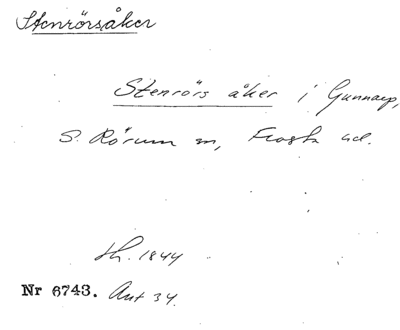 Stenrörsåker
Stenrörs åker i Gunnarp,
S. Rörum sn, Frosta hd.
Lh. 1844
Nr 6743. Ant 34.